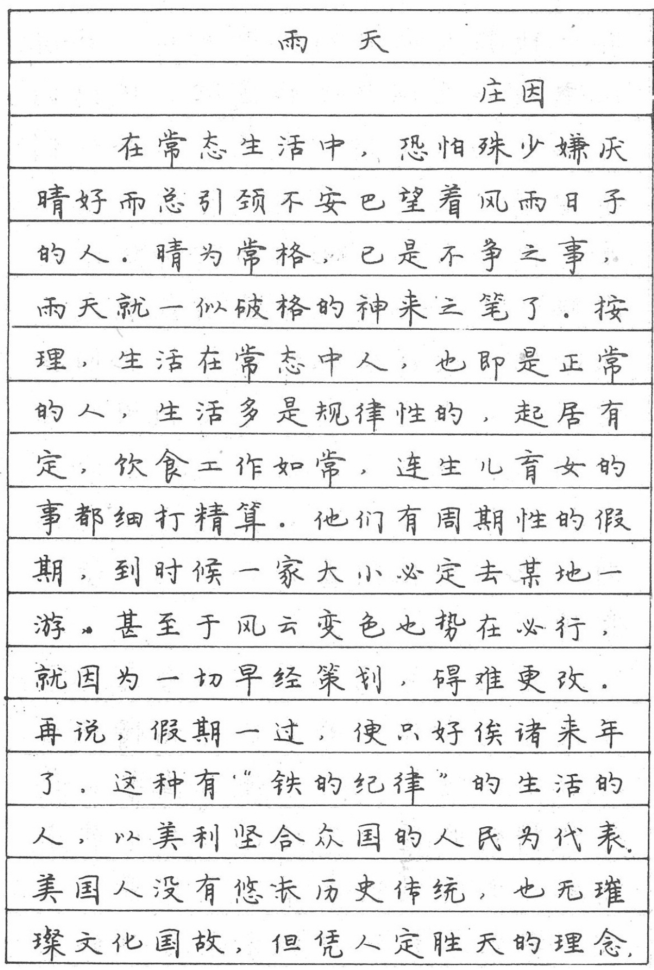 雨 天
庄因
在常态生活中，恐怕殊少嫌厌
晴好而总引颈不安巴望着风雨日子
的人．晴为常格，已是不争之事，
雨天就一似破格的神来之笔了．按
理，生活在常态中人，也即是正常
的人，生活多是规律性的，起居有
定，饮食工作如常，连生儿育女的
事都细打精算．他们有周期性的假
期，到时候一家大小必定去某地一
游．甚至于风云变色也势在必行，
就因为一切早经策划，碍难更改．
再说，假期一过，便只好俟诸来年
了．这种有“铁的纪律”的生活的
人，以美利坚合众国的人民为代表．
美国人没有悠长历史传统，也无璀
璨文化国故，但凭人定胜天的理念，